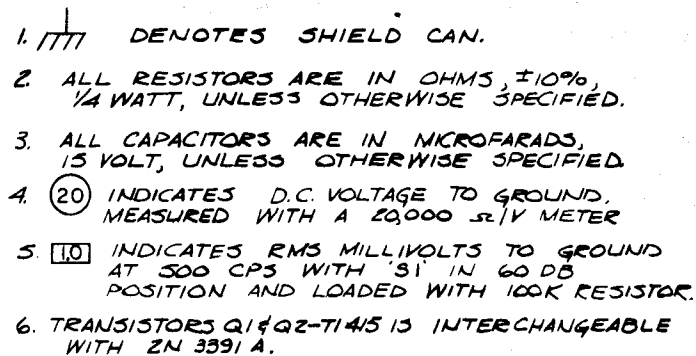 1. DENOTES SHIELD CAN.
2. ALL RESISTORS ARE IN OHMS, ±10%,
1/4 WATT, UNLESS OTHERWISE SPECIFIED.
3. ALL CAPACITORS ARE IN MICROFARADS,
15 VOLT, UNLESS OTHERWISE SPECIFIED
4. 20 INDICATES D.C. VOLTAGE TO GROUND,
MEASURED WITH A 20,000 Ω/V METER
5. 1.0 INDICATES RMS MILLIVOLTS TO GROUND
AT 500 CPS WITH 'S1' IN 60 DB
POSITION AND LOADED WITH 100K RESISTOR.
6. TRANSISTORS Q1 & Q2-TI415 IS INTERCHANGEABLE
WITH 2N 3391 A.